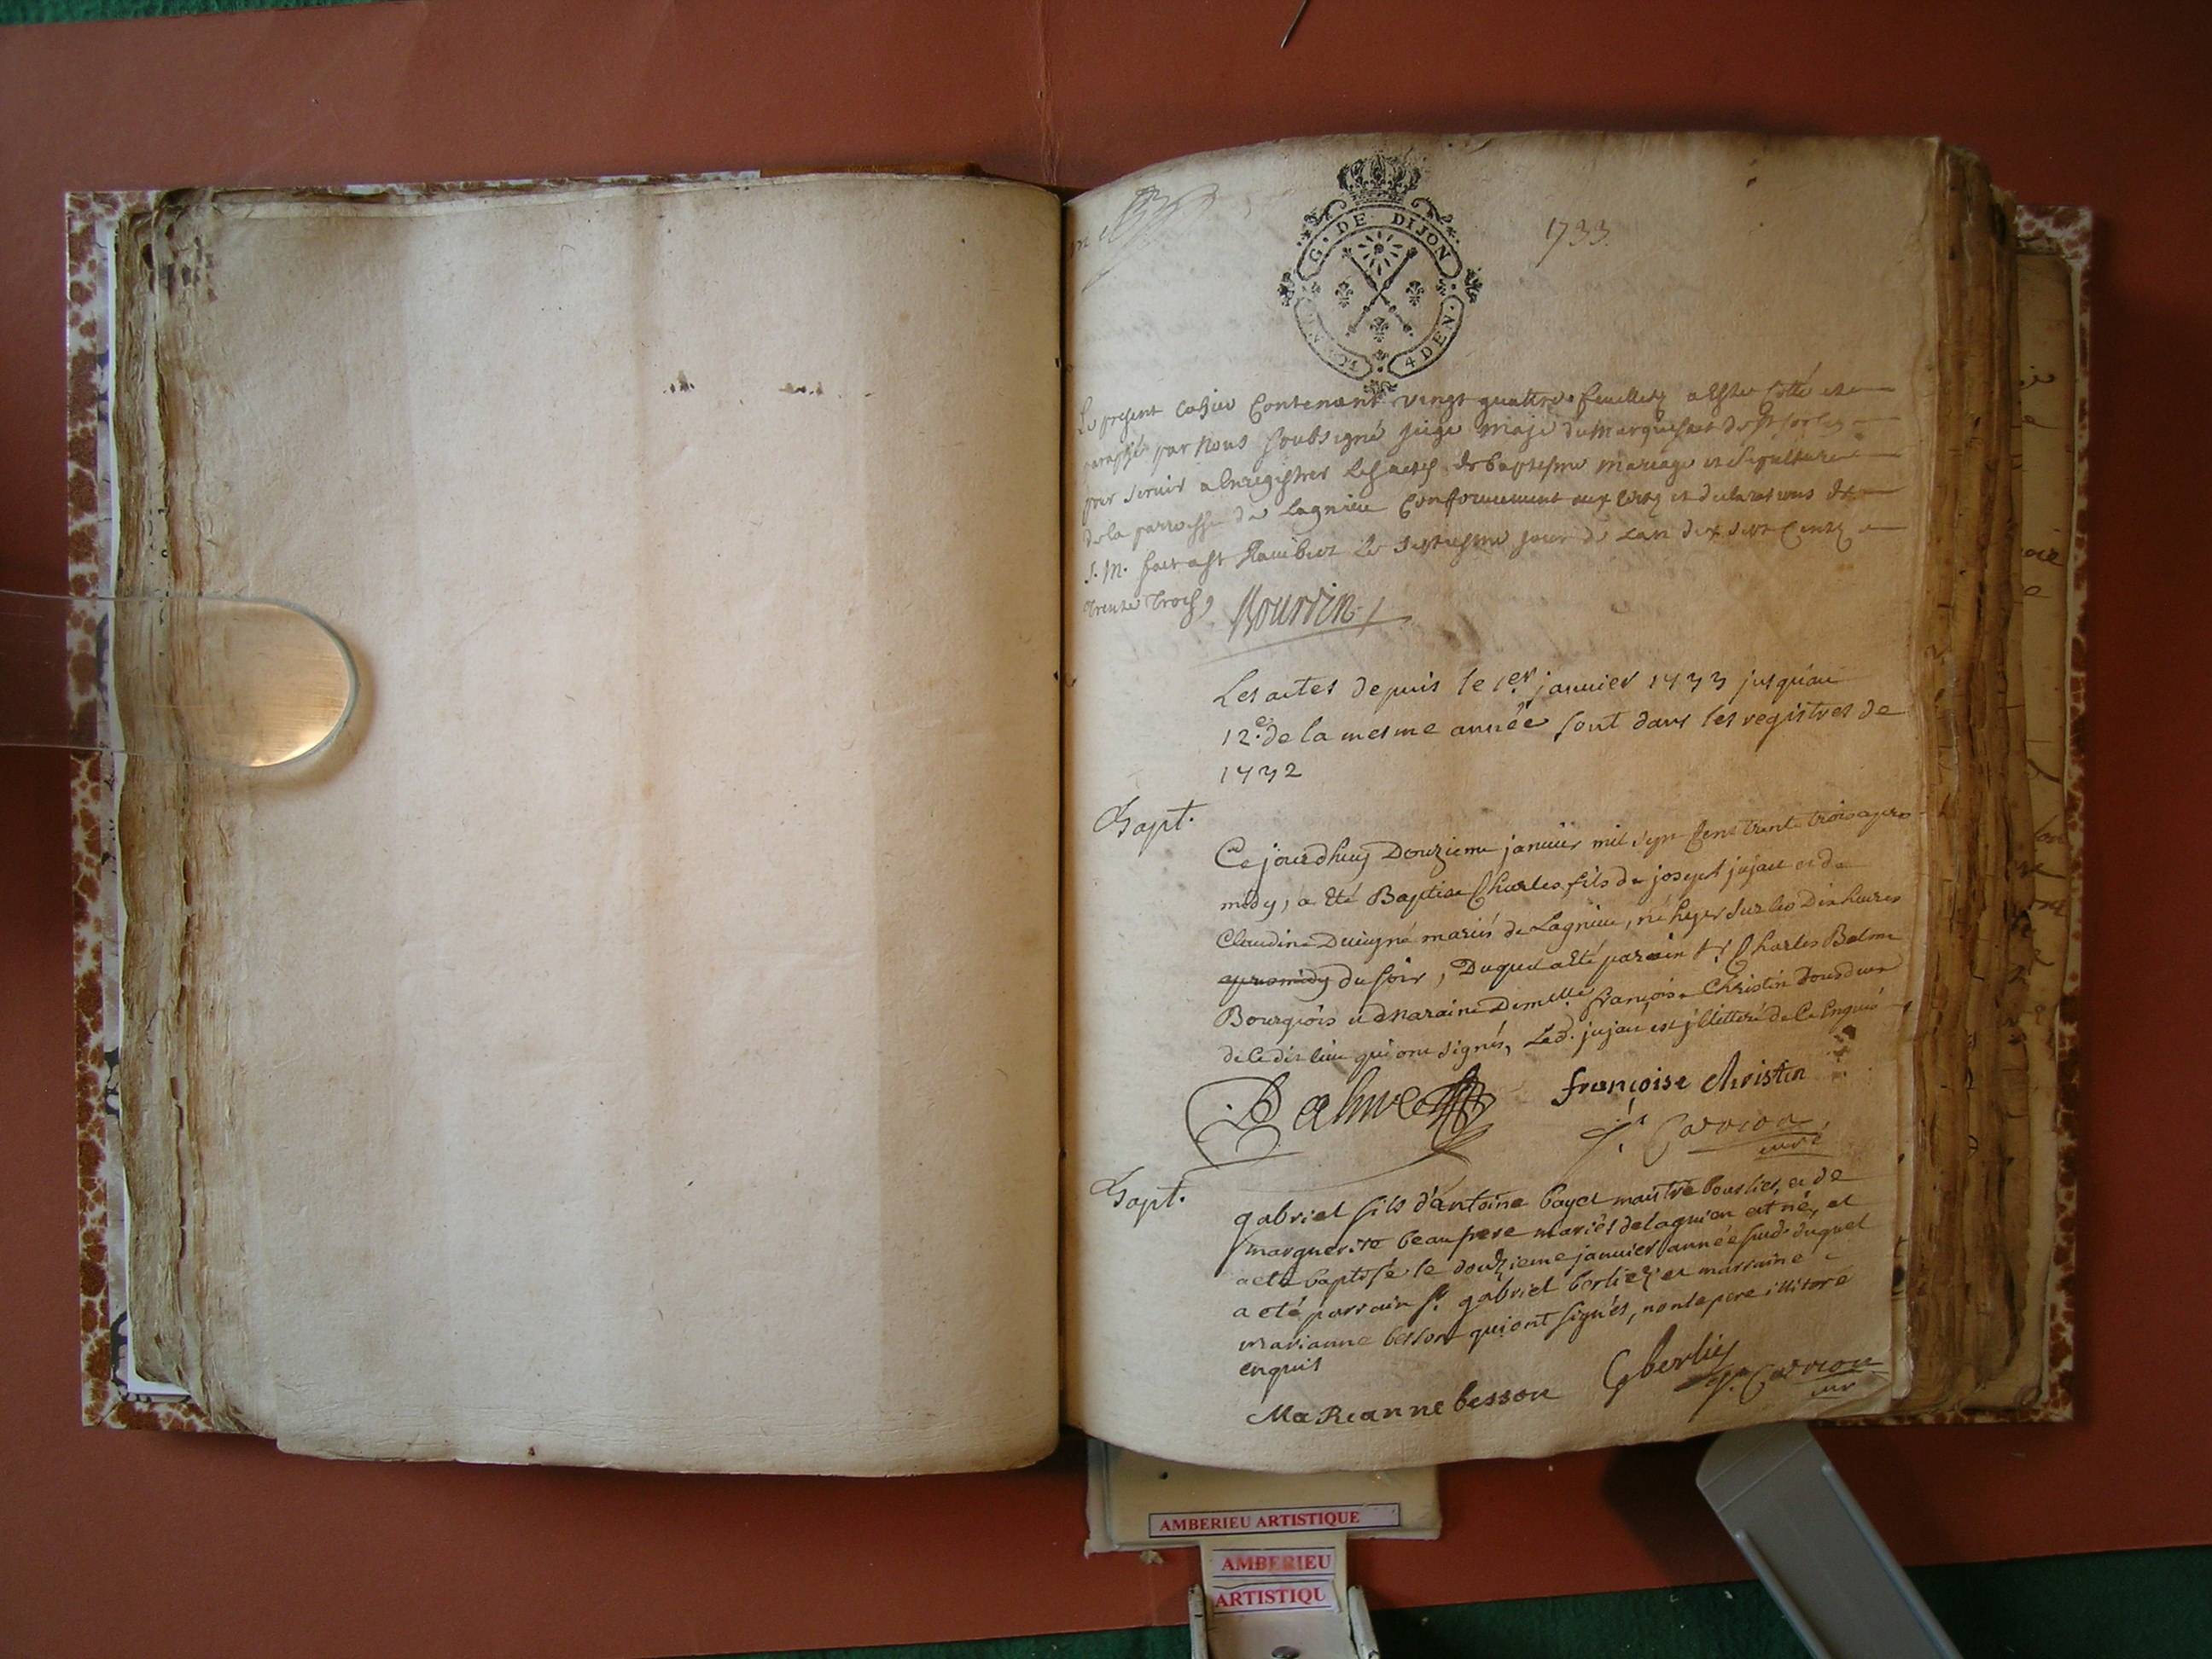 1733.
G. DE DIJON
4 DEN.
Le present Cahier Contenant vingt quattre feuillets a esté cotté et
paraphé par Nous soubsigné juge maje du Marquisat de St Sorlin
pour servir a Enregistrer Les actes de baptesme mariage et sepulture
de la parroisse de Lagnieu Conformement aux Edits et declarations de
S. M. fait a St Rambert Le septiesme jour de Lan dix sept Cents
trente trois, Bourdin
Les actes depuis le 1er janvier 1733 jusqu'au
12e de la mesme année sont dans les registres de
1732
Bapt.
Ce jourdhuy Douzieme janvier mil sept cens trente trois apres
midy, a eté Baptisé Charles fils de joseph jujat et de
Claudine mariés de Lagnieu, né hyer sur les Dix heures
apres midy du soir, Duquel a eté parain Sr Charles Balme
Bourgeois et Maraine Demelle françoise Christin tous deux
de ce dit lieu qui ont signés, Led. jujat est illitteré de ce Enquis
Balme françoise christin
curé
Bapt.
gabriel fils d'antoine bayet maistre bourlier, et de
marguerite beaufrere mariés de lagnieu est né, et
a eté baptisé le douzieme janvier année susd. duquel
a eté parrain Sr gabriel berliez et marraine
marianne besson qui ont signés, non le pere illiteré
enquis
MaReanne besson Gberliez
cur
AMBERIEU ARTISTIQUE
AMBERIEU
ARTISTIQU